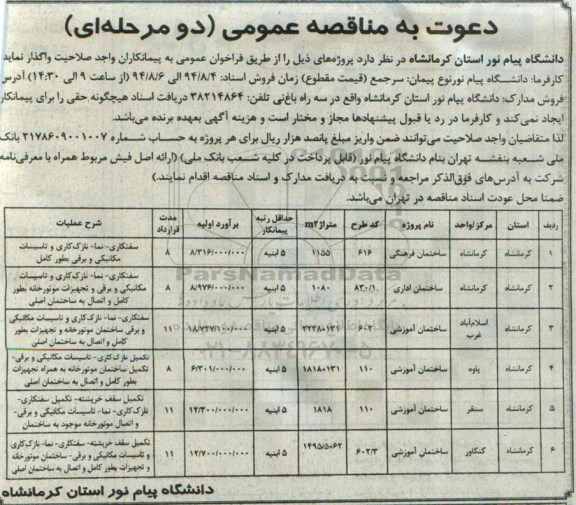 دعوت به مناقصه عمومی (دو مرحله‌ای)
دانشگاه پیام نور استان کرمانشاه در نظر دارد پروژه‌های ذیل را از طریق فراخوان عمومی به پیمانکاران واجد صلاحیت واگذار نماید
کارفرما: دانشگاه پیام نور نوع پیمان: سرجمع (قیمت مقطوع) زمان فروش اسناد: ۹۴/۸/۴ الی ۹۴/۸/۶ (از ساعت ۹ الی ۱۴:۳۰) آدرس
فروش مدارک: دانشگاه پیام نور استان کرمانشاه واقع در سه راه باغ‌نی تلفن: ۳۸۲۱۴۸۶۴ دریافت اسناد هیچگونه حقی را برای پیمانکار
ایجاد نمی‌کند و کارفرما در رد یا قبول پیشنهادها مجاز و مختار است و هزینه آگهی بعهده برنده می‌باشد.
لذا متقاضیان واجد صلاحیت می‌توانند ضمن واریز مبلغ پانصد هزار ریال برای هر پروژه به حساب شماره ۲۱۷۸۶۰۹۰۰۱۰۰۷ بانک
ملی شعبه بنفشه تهران بنام دانشگاه پیام نور (قابل پرداخت در کلیه شعب بانک ملی) (ارائه اصل فیش مربوط همراه با معرفی‌نامه
شرکت به آدرس‌های فوق‌الذکر مراجعه و نسبت به دریافت مدارک و اسناد مناقصه اقدام نمایند.)
ضمنا محل عودت اسناد مناقصه در تهران می‌باشد.
ردیف استان مرکز/واحد نام پروژه کد طرح متراژ m۲ حداقل رتبه پیمانکار برآورد اولیه مدت قرارداد شرح عملیات
۱ کرمانشاه کرمانشاه ساختمان فرهنگی ۶۱۶ ۱۱۵۵ ۵ ابنیه ۸/۳۱۶/۰۰۰/۰۰۰ ۸ سفتکاری- نما- نازک‌کاری و تاسیسات
مکانیکی و برقی بطور کامل
۲ کرمانشاه کرمانشاه ساختمان اداری ۸۳۰/۱ ۱۰۸۰ ۵ ابنیه ۸/۹۷۶/۰۰۰/۰۰۰ ۸ سفتکاری- نما- نازک‌کاری و تاسیسات
مکانیکی و برقی و تجهیزات موتورخانه بطور
کامل و اتصال به ساختمان اصلی
۳ کرمانشاه اسلام‌آباد غرب ساختمان آموزشی ۶۰۲ ۲۲۳۸+۱۳۱ ۵ ابنیه ۱۸/۷۲۷/۱۰۰/۰۰۰ ۱۱ سفتکاری- نما- نازک‌کاری و تاسیسات مکانیکی
و برقی ساختمان موتورخانه و تجهیزات بطور
کامل و اتصال به ساختمان اصلی
۴ کرمانشاه پاوه ساختمان آموزشی ۱۱۰ ۱۸۱۸+۱۳۱ ۵ ابنیه ۶/۳۰۱/۰۰۰/۰۰۰ ۸ تکمیل نازک‌کاری- تاسیسات مکانیکی و برقی-
تکمیل ساختمان موتورخانه به همراه تجهیزات
بطور کامل و اتصال به ساختمان اصلی
۵ کرمانشاه سنقر ساختمان آموزشی ۱۱۰ ۱۸۱۸ ۵ ابنیه ۱۲/۳۰۰/۰۰۰/۰۰۰ ۱۱ تکمیل سقف خرپشته- تکمیل سفتکاری-
نازک‌کاری- نما- تاسیسات مکانیکی و برقی-
و اتصال موتورخانه موجود به ساختمان
۶ کرمانشاه کنگاور ساختمان آموزشی ۶۰۲/۳ ۱۴۹۵/۵+۶۲ ۵ ابنیه ۱۲/۷۰۰/۰۰۰/۰۰۰ ۱۱ تکمیل سقف خرپشته- سفتکاری- نما- نازک‌کاری
و تاسیسات مکانیکی و برقی- ساختمان موتورخانه
و تجهیزات بطور کامل و اتصال به ساختمان اصلی
ParsNamadData
۰۲۱-۸۸۳۴۹۶۷۰-۵
دانشگاه پیام نور استان کرمانشاه